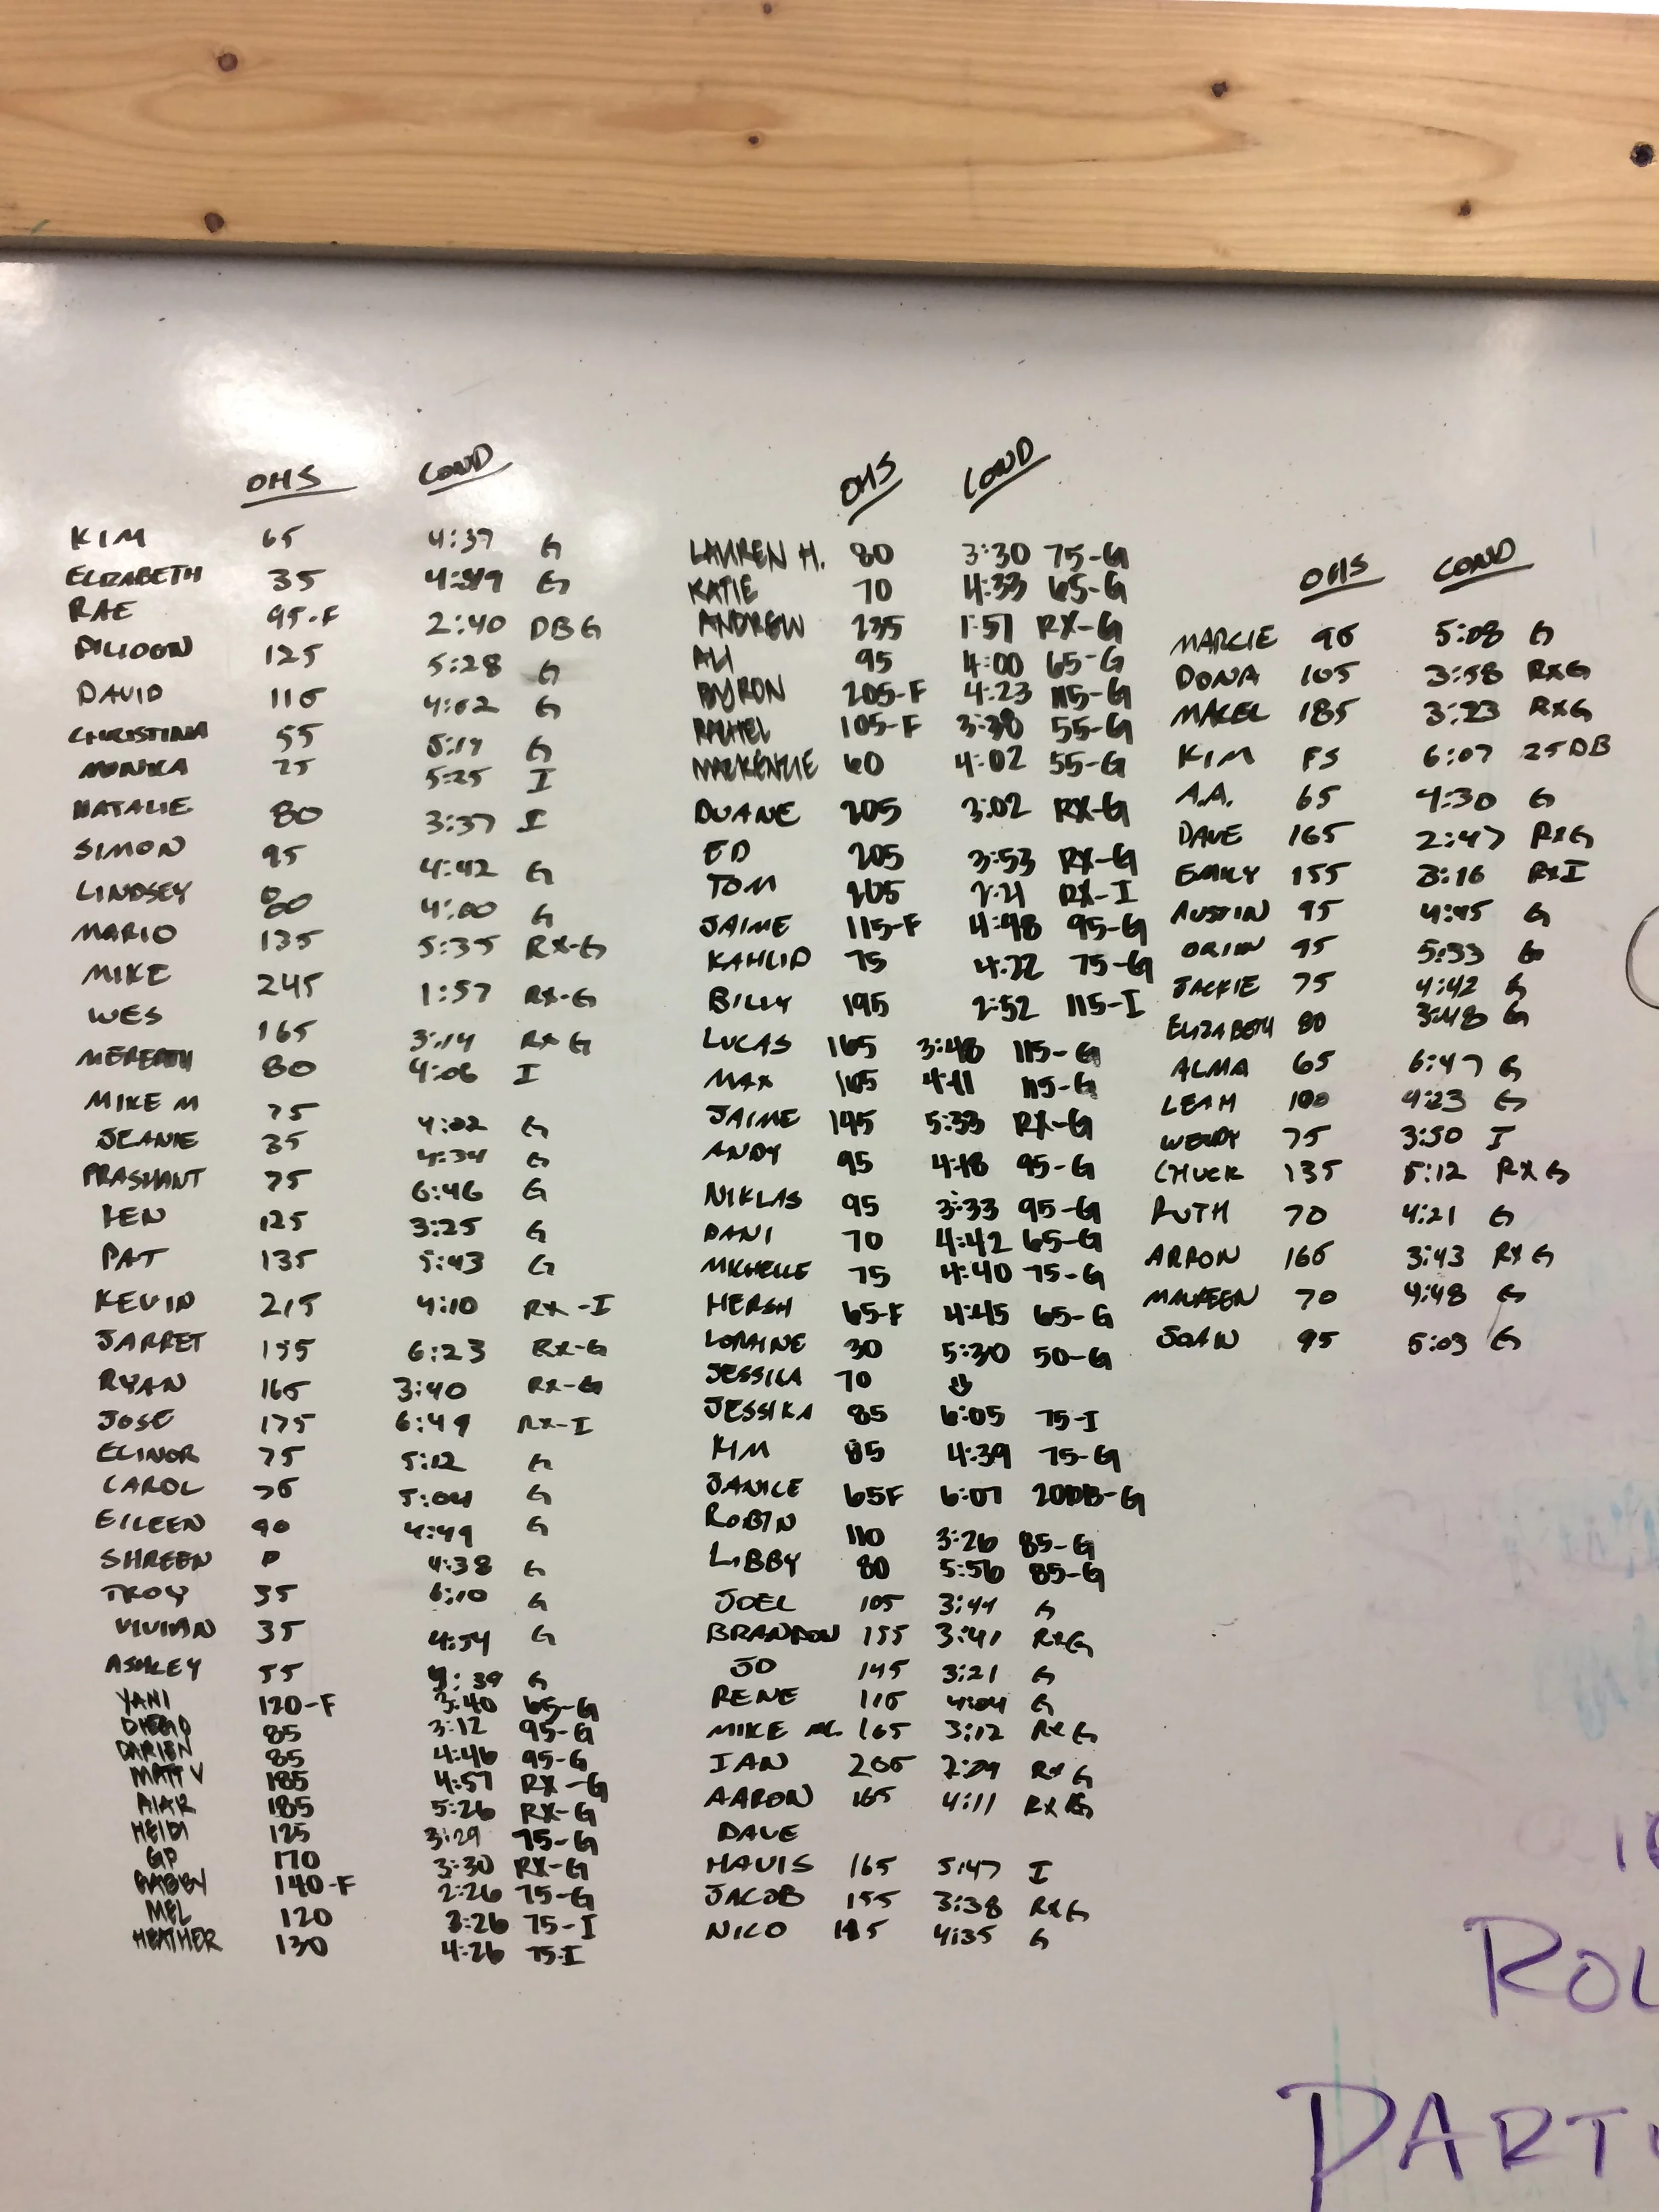 OHS COND
KIM 65 4:37 G
ELIZABETH 35 4:49 G
RAE 95-F 2:40 DB G
125 5:28 G
DAVID 115 4:02 G
CHRISTINA 55 5:19 G
MONIKA 25 5:25 I
NATALIE 80 3:37 I
SIMON 95 4:42 G
LINDSEY 80 4:00 G
MARIO 135 5:35 RX-G
MIKE 245 1:57 RX-G
WES 165 3:14 RX G
MEREDITH 80 4:06 I
MIKE M 75 4:02 G
JEANIE 35 4:34 G
PRASHANT 75 6:46 G
125 3:25 G
PAT 135 5:43 G
KEVIN 215 4:10 RX-I
JARRET 155 6:23 RX-G
RYAN 165 3:40 RX-G
JOSE 175 6:49 RX-I
ELINOR 75 5:12 G
CAROL 5:04 G
EILEEN 90 4:49 G
SHREEN P 4:38 G
TROY 35 6:10 G
VIVIAN 35 4:54 G
ASHLEY 55 4:39 G
YANI 120-F 3:40 65-G
DIEGO 85 3:12 95-G
DARIEN 85 4:46 95-G
MATT V 185 4:57 RX-G
185 5:26 RX-G
HEIDI 125 3:29 75-G
GP 170 3:30 RX-G
GABBY 140-F 2:26 75-G
MEL 120 3:26 75-I
HEATHER 130 4:26 75-I
OHS COND
LAUREN H. 80 3:30 75-G
KATIE 70 4:33 65-G
ANDREW 235 1:51 RX-G
ALI 95 4:00 65-G
BYRON 205-F 4:23 115-G
RACHEL 105-F 3:38 55-G
MACKENZIE 60 4:02 55-G
DUANE 205 3:02 RX-G
ED 205 3:53 RX-G
TOM 205 2:21 RX-I
JAIME 115-F 4:48 95-G
KAHLID 75 4:22 75-G
BILLY 195 2:52 115-I
LUCAS 165 3:48 115-G
MAX 165 4:11 115-G
JAIME 145 5:33 RX-G
ANDY 95 4:18 95-G
NIKLAS 95 3:33 95-G
DANI 70 4:42 65-G
MICHELLE 75 4:40 75-G
HERSH 65-F 4:45 65-G
LORAINE 30 5:30 50-G
JESSICA 70
JESSIKA 85 6:05 75-I
KIM 85 4:39 75-G
JANICE 65F 6:07 20DB-G
ROBIN 110 3:26 85-G
LIBBY 80 5:56 85-G
JOEL 105 3:44 G
BRANDON 155 3:41 RXG
JO 145 3:21 G
RENE 115 4:04 G
MIKE Mc. 165 3:12 RX G
IAN 205 2:29 RX G
AARON 165 4:11 RX G
DAVE
MAVIS 165 5:47 I
JACOB 155 3:38 RXG
NICO 185 4:35 G
OHS COND
MARCIE 95 5:08 G
DONA 105 3:58 RXG
185 3:23 RXG
KIM FS 6:07 25DB
A.A. 65 4:30 G
DAVE 165 2:47 RXG
EMILY 155 3:16 RXI
AUSTIN 95 4:45 G
ORION 95 5:33 G
JACKIE 75 4:42 G
ELIZABETH 80 3:48 G
ALMA 65 6:47 G
LEAH 100 4:23 G
WENDY 75 3:50 I
CHUCK 135 5:12 RXG
RUTH 70 4:21 G
ARRON 165 3:43 RXG
MAUREEN 70 4:48 G
JOAN 95 5:03 G
ROL
PART